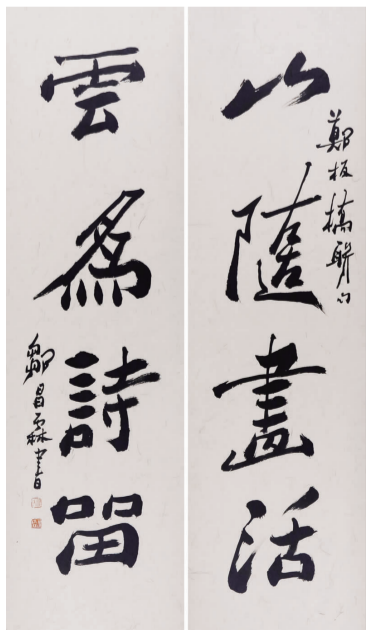 山隨畫活
鄭板橋聯句
雲為詩留
鄒昌霖書